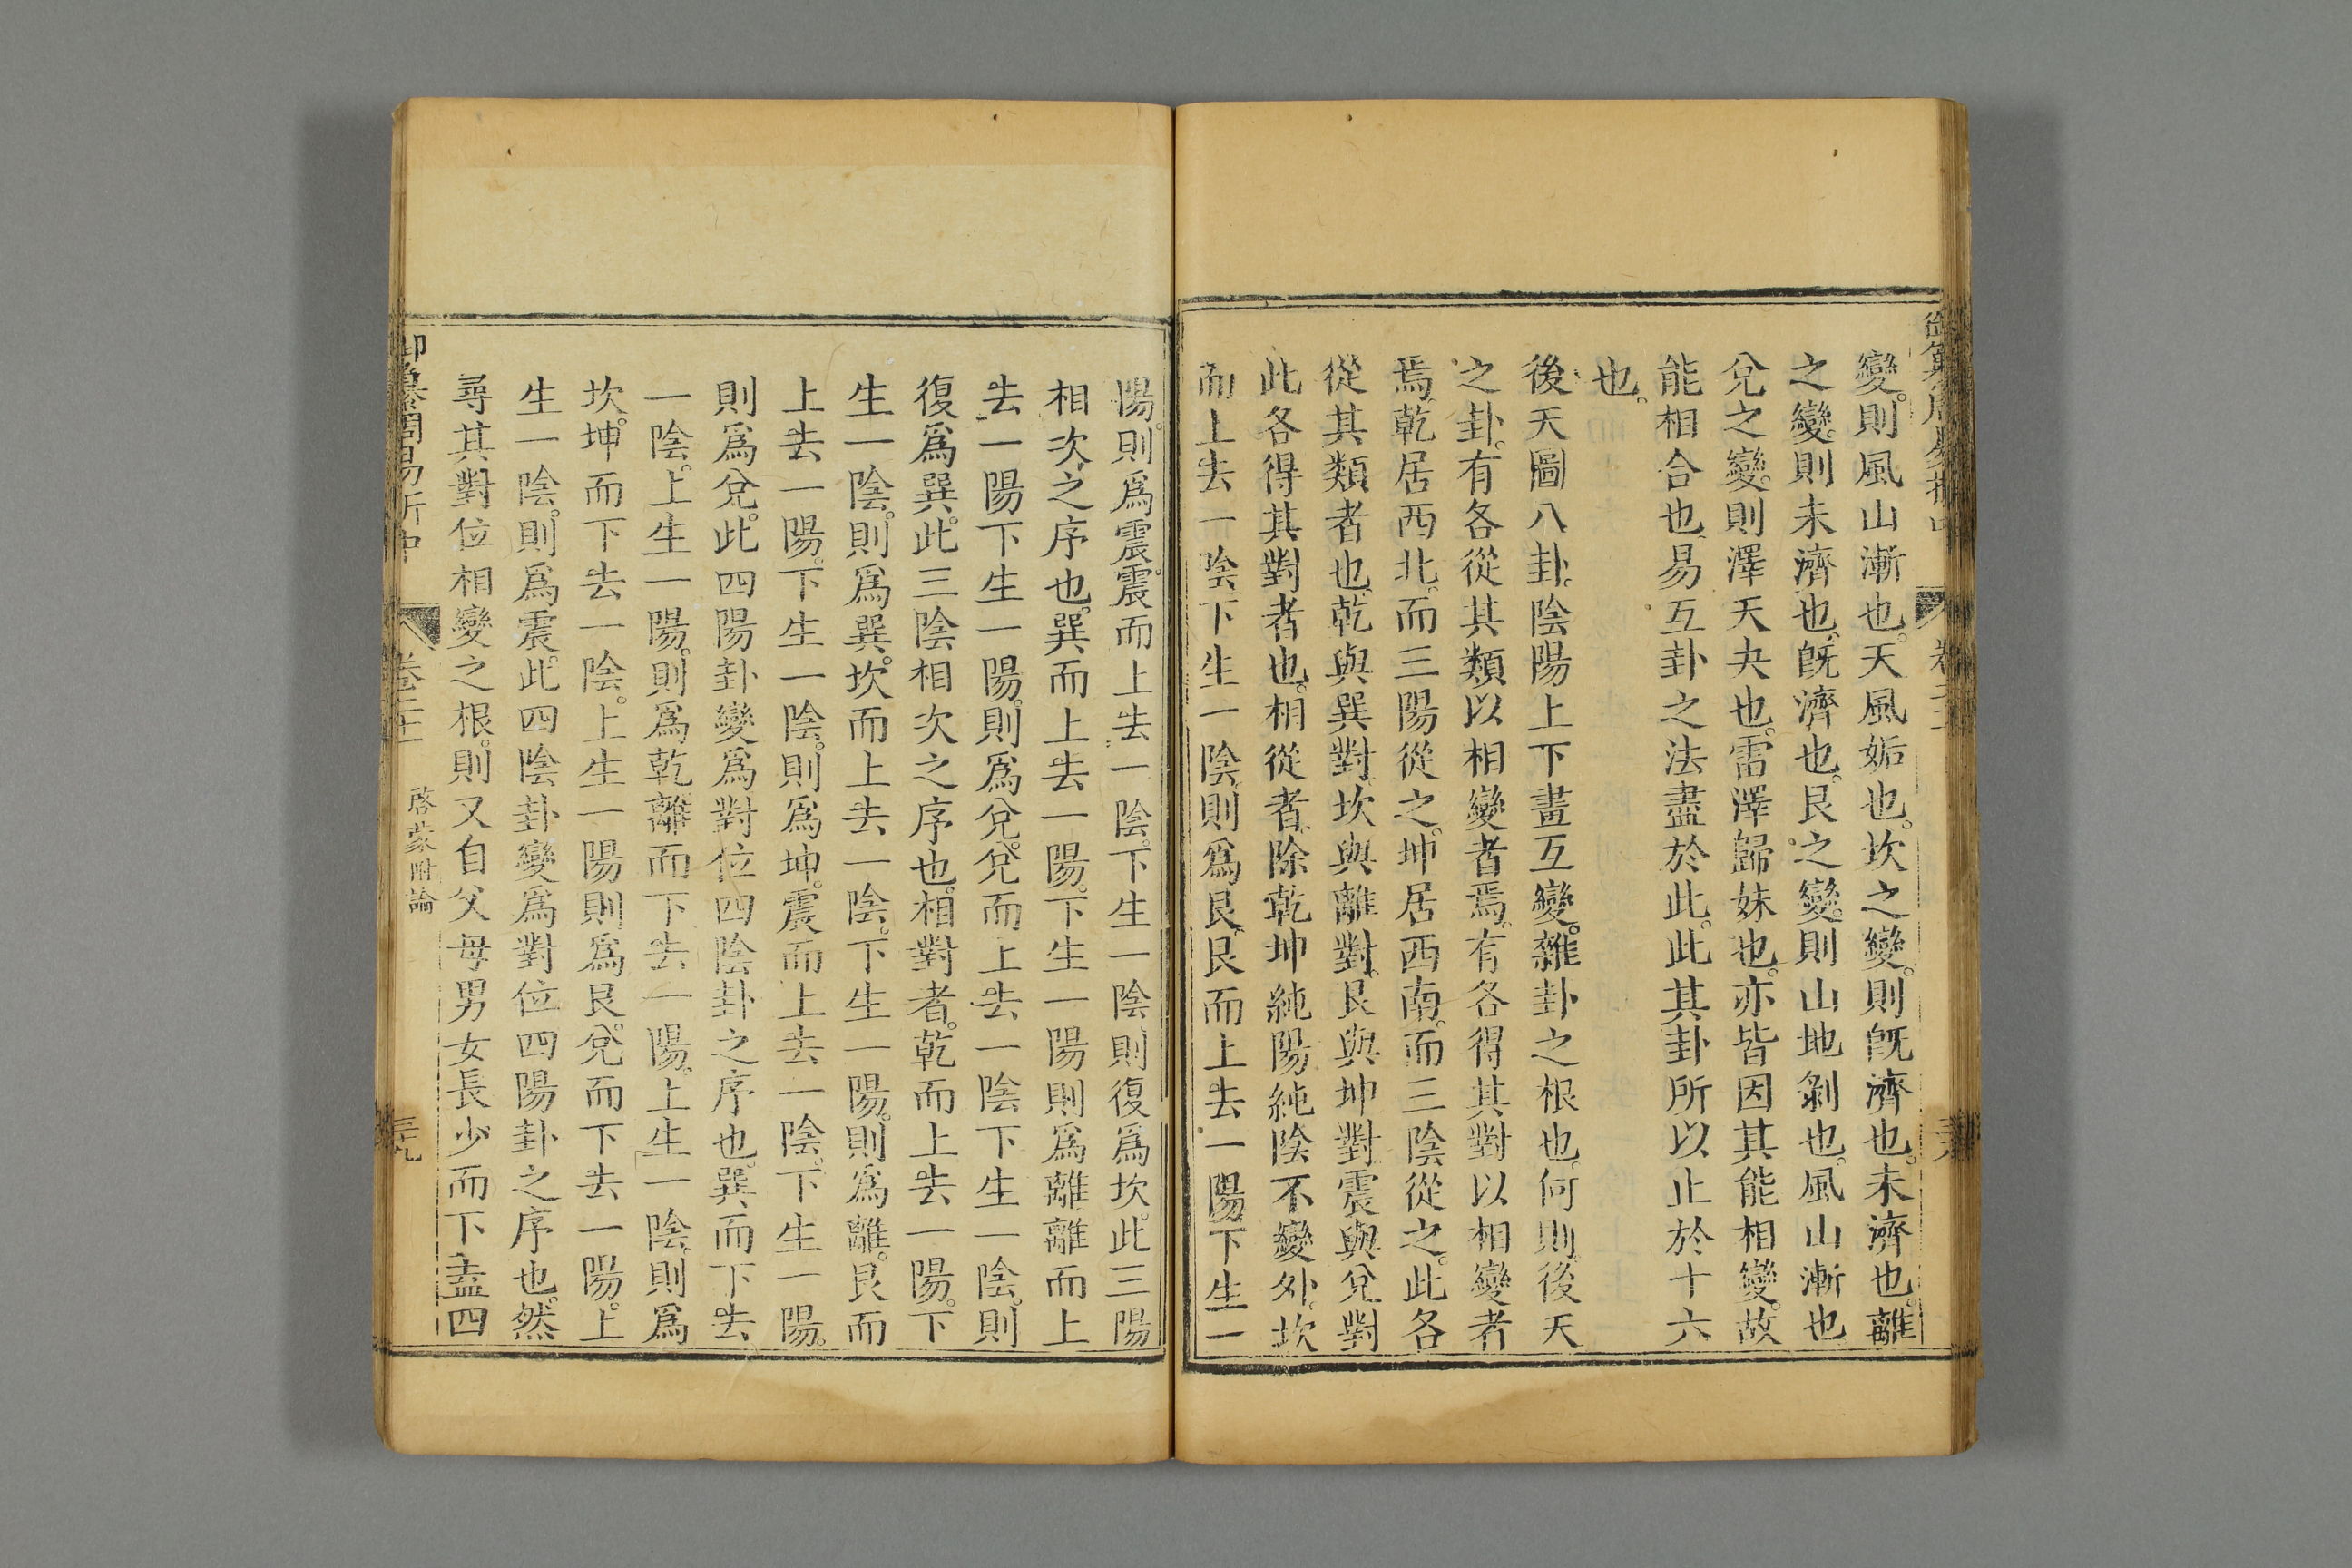 變則風山漸也天風姤也坎之變則旣濟也未濟也離
之變則未濟也旣濟也艮之變則山地剝也風山漸也
兌之變則澤天夬也雷澤歸妹也亦皆因其能相變故
能相合也易互卦之法盡於此此其卦所以止於十六
也
後天圖八卦陰陽上下畫互變雜卦之根也何則後天
之卦有各從其類以相變者焉有各得其對以相變者
焉乾居西北而三陽從之坤居西南而三陰從之此各
從其類者也乾與巽對坎與離對艮與坤對震與兌對
此各得其對者也相從者除乾坤純陽純陰不變外坎
而上去一陰下生一陰則爲艮艮而上去一陽下生一
陽則爲震震而上去一陰下生一陰則復爲坎此三陽
相次之序也巽而上去一陽下生一陽則爲離離而上
去一陽下生一陽則爲兌兌而上去一陰下生一陰則
復爲巽此三陰相次之序也相對者乾而上去一陽下
生一陰則爲巽坎而上去一陰下生一陽則爲離艮而
上去一陽下生一陰則爲坤震而上去一陰下生一陽
則爲兌此四陽卦變爲對位四陰卦之序也巽而下去
一陰上生一陽則爲乾離而下去一陽上生一陰則爲
坎坤而下去一陰上生一陽則爲艮兌而下去一陽上
生一陰則爲震此四陰卦變爲對位四陽卦之序也然
尋其對位相變之根則又自父母男女長少而下盡四
御纂周易折中 卷二十一 啓蒙附論 三十九